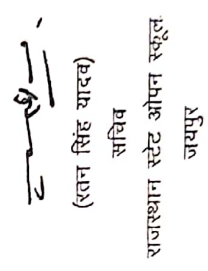 (रतन सिंह यादव)
सचिव
राजस्थान स्टेट ओपन स्कूल
जयपुर